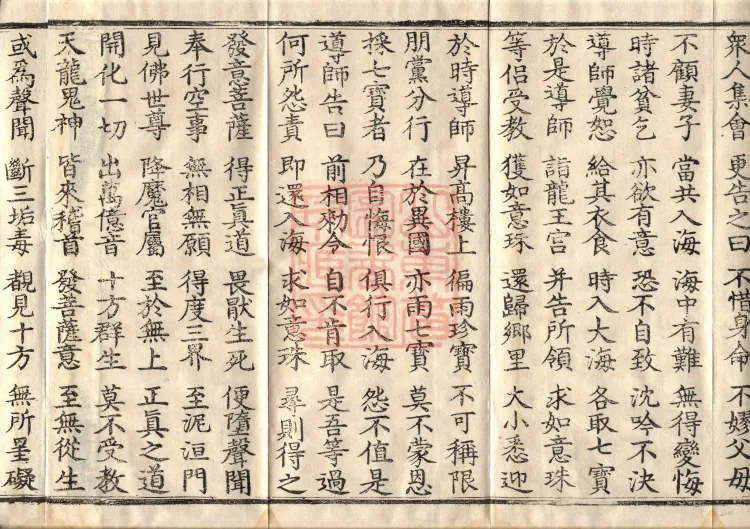 衆人集會 更告之曰 不惜身命 不嫪父母
不顧妻子 當共入海 海中有難 無得變悔
時諸貧乞 亦欲有意 恐不自致 沈吟不決
導師覺恕 給其衣食 時入大海 各取七寶
於是導師 詣龍王宮 并告所領 求如意珠
等侶受教 獲如意珠 還歸鄉里 大小悉迎
於時導師 昇高樓上 徧雨珍寶 不可稱限
朋黨分行 在於異國 亦雨七寶 莫不蒙恩
採七寶者 乃自悔恨 俱行入海 怨不值是
導師告曰 前相勑令 自不肯取 是吾等過
何所怨責 即還入海 求如意珠 尋則得之
發意菩薩 得正真道 畏猒生死 便墮聲聞
奉行空事 無相無願 得度三界 至泥洹門
見佛世尊 降魔官屬 至於無上 正真之道
開化一切 出萬億音 十方群生 莫不受教
天龍鬼神 皆來稽首 發菩薩意 至無從生
或爲聲聞 斷三垢毒 覩見十方 無所罣礙